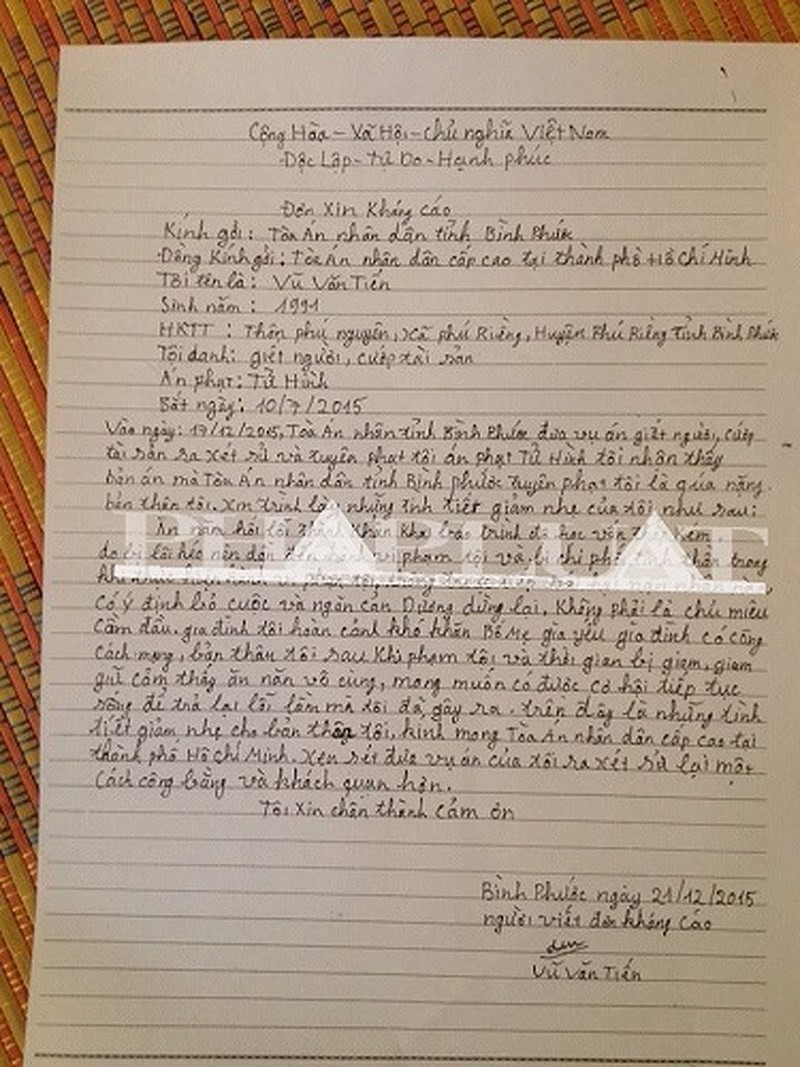 Cộng Hòa - Xã Hội - chủ nghĩa Việt Nam
Độc Lập - Tự Do - Hạnh phúc
Đơn Xin Kháng Cáo
Kính gởi: Tòa Án nhân dân tỉnh Bình Phước
Đồng Kính gởi: Tòa Án nhân dân cấp cao tại thành phố Hồ Chí Minh
Tôi tên là: Vũ Văn Tiến
Sinh năm: 1991
HKTT: Thôn phú nguyên, Xã phú Riềng, Huyện Phú Riềng Tỉnh Bình Phước
Tội danh: giết người, cướp tài sản
Án phạt: Tử Hình
Bắt ngày: 10/7/2015
Vào ngày: 17/12/2015, Tòa Án nhân tỉnh Bình Phước đưa vụ án giết người, cướp
tài sản ra xét sử và tuyên phạt tôi án phạt Tử Hình tôi nhận thấy
bản án mà Tòa Án nhân dân tỉnh Bình phước Tuyên phạt tôi là qúa nặng.
bản thân tôi. xin trình bày những tình tiết giảm nhẹ của tôi như sau:
Ăn năn hối lỗi thành Khẩn Khai báo trình độ học vấn thấp kém
do bị lôi kéo nên dẫn đến hành vi phạm tội và bị chi phối tinh thần trong
Có ý định bỏ cuộc và ngăn cản Dương dừng lại. Không phải là chủ mưu
Cầm đầu. gia đình tôi hoàn cảnh khó khăn Bố Mẹ gìa yếu gia đình có công
Cách mạng, bản thân tôi sau Khi phạm tội và thời gian bị giam, giam
giữ cảm thấy ăn năn vô cùng, mong muốn có được cơ hội tiếp tục
sống để trả lại lỗi lầm mà tôi đã gây ra. trên đây là những tình
tiết giảm nhẹ cho bản thân tôi, kính mong Tòa Án nhân dân cấp cao tại
thành phố Hồ Chí Minh. xem sét đưa vụ án của tôi ra xét sử lại một
Cách công bằng và khách quan hơn.
Tôi Xin chân thành Cảm ơn
Bình Phước ngày 21/12/2015
người viết đơn kháng Cáo
Vũ Văn Tiến